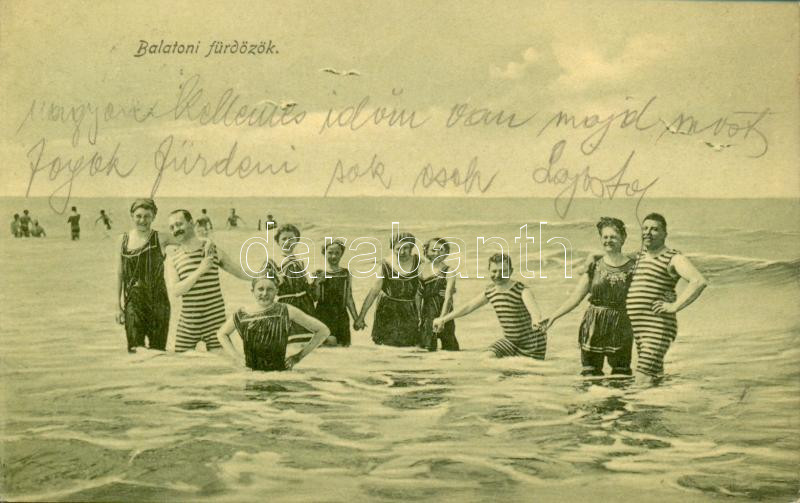 Balatoni fürdőzők.
nagyon Kellemes időm van majd most
fogok fürdeni sok csók
darabanth.com